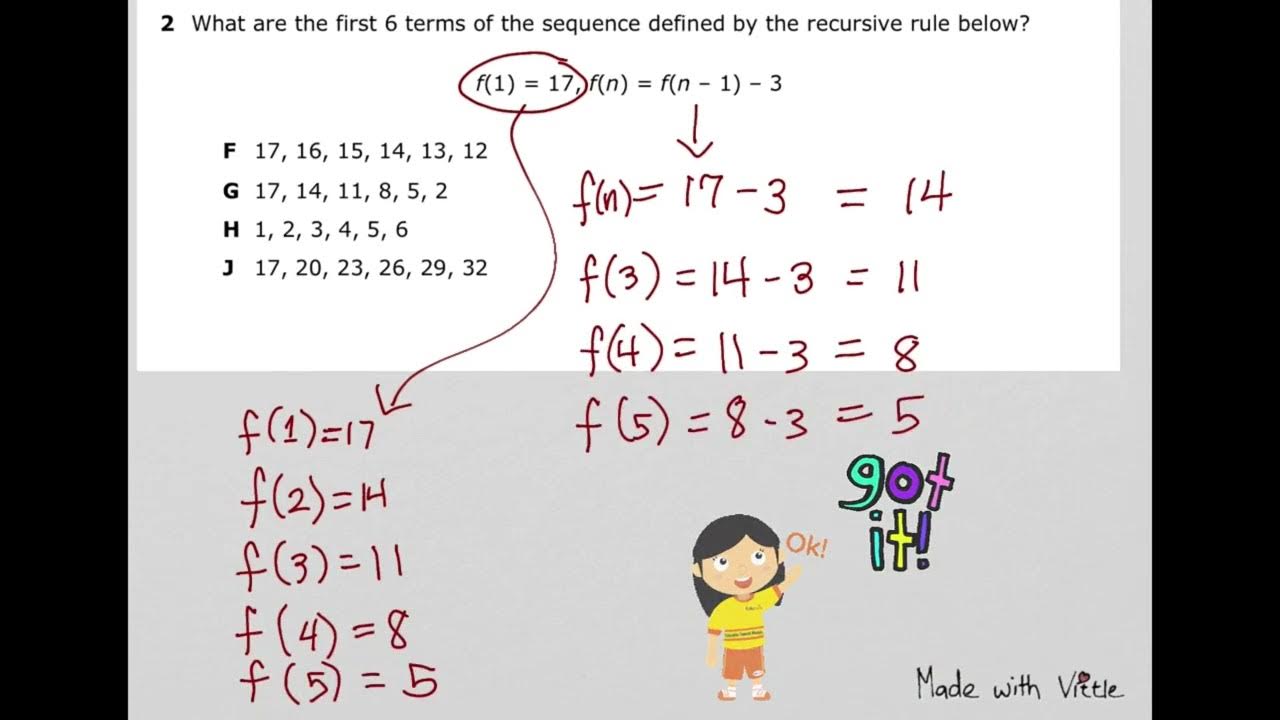 2 What are the first 6 terms of the sequence defined by the recursive rule below?
f(1) = 17, f(n) = f(n – 1) – 3
F 17, 16, 15, 14, 13, 12
G 17, 14, 11, 8, 5, 2
H 1, 2, 3, 4, 5, 6
J 17, 20, 23, 26, 29, 32
f(n) = 17 - 3 = 14
f(3) = 14 - 3 = 11
f(4) = 11 - 3 = 8
f(5) = 8 - 3 = 5
f(1)=17
f(2)=14
f(3)=11
f(4)=8
f(5)=5
Ok!
got
it!
Made with Vittle